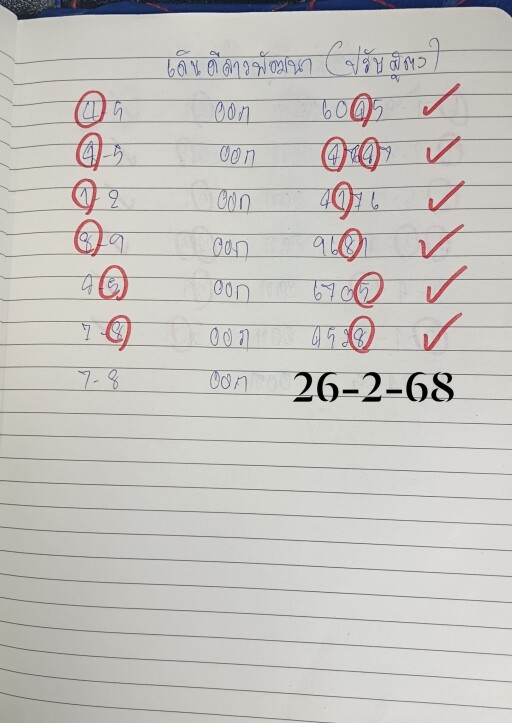 เดินดีลาวพัฒนา (ปรับสูตร)
4-5 ออก 6045
4-5 ออก 4747
1-2 ออก 4176
8-9 ออก 9681
4-5 ออก 6705
7-8 ออก 4528
7-8 ออก 26-2-68